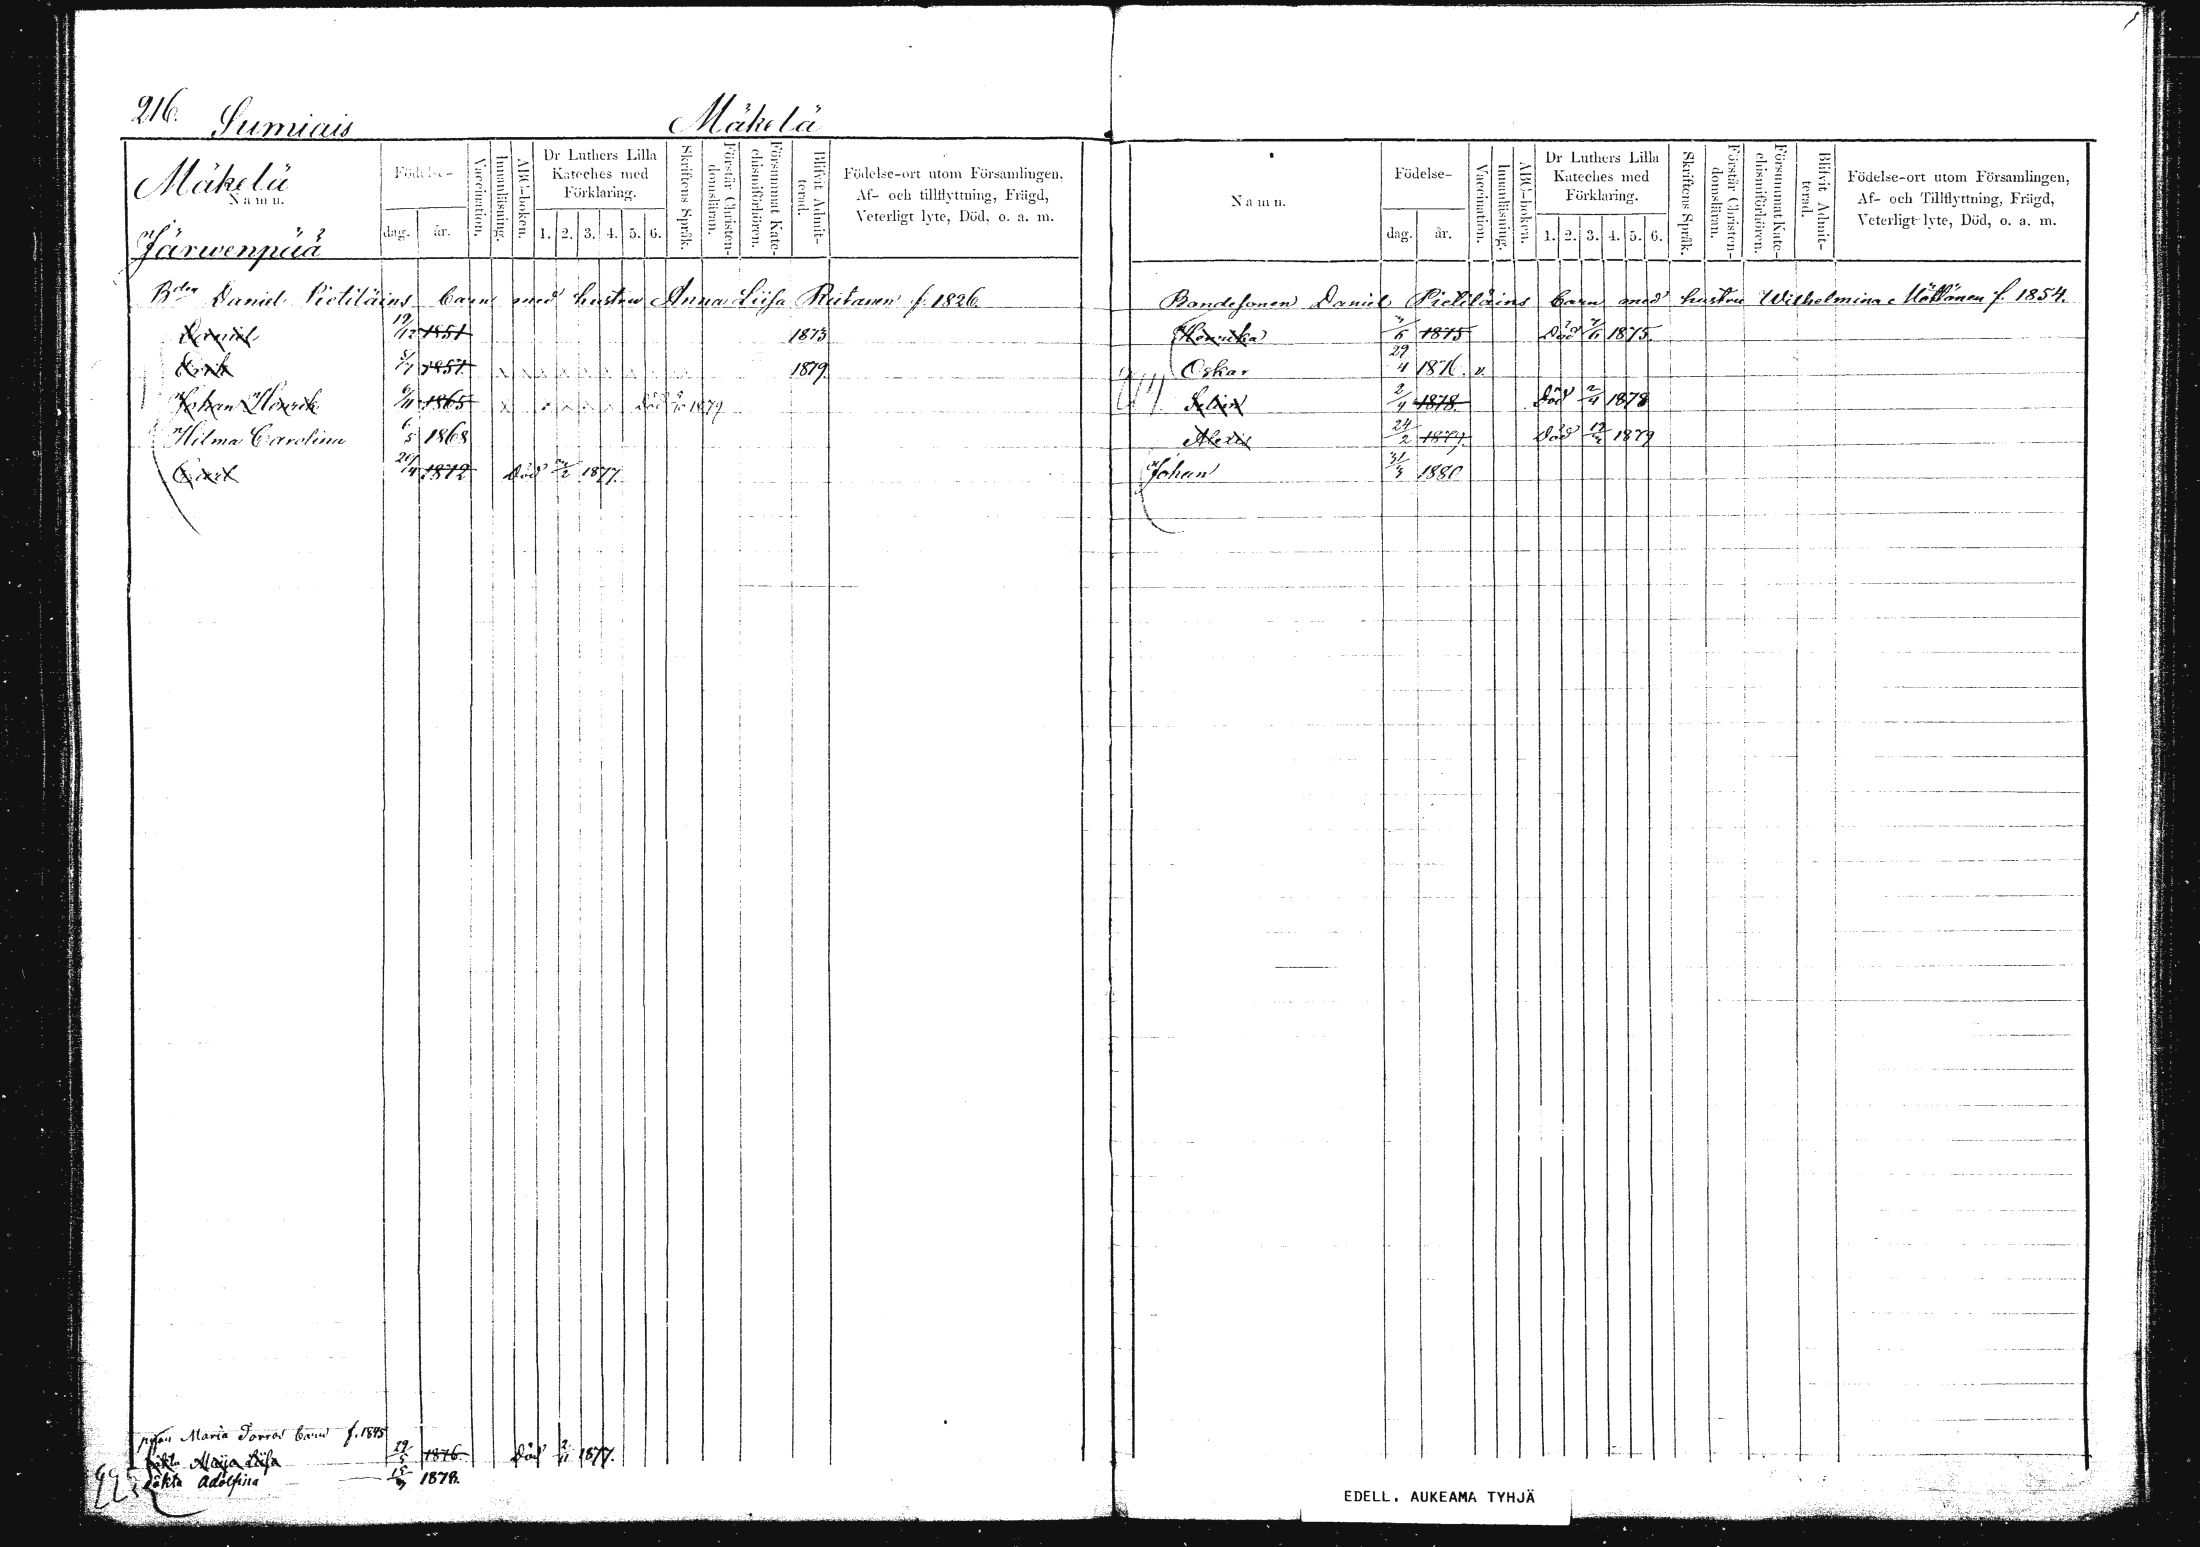 216. Sumiais Mäkelä
Mäkelä
Namn.
Järwenpää
Födelse-
dag. år.
Vaccination.
Innanläsning.
ABC-boken.
Dr Luthers Lilla
Kateches med
Förklaring.
1. 2. 3. 4. 5. 6.
Skriftens Språk.
Förstår Christen-
domsläran.
Försummat Kate-
chismiförhören.
Blifvit Admit-
terad.
Födelse-ort utom Församlingen,
Af- och tillflyttning, Frägd,
Veterligt lyte, Död, o. a. m.
Bden Daniel Pietiläins barn med hustru Anna Liisa f. 1826
Daniel 19/12 1851 1873
Erik 1857 1879.
Johan Henrik 6/11 1865 Död 1879
Hilma Carolina 6/5 1868
Carl 20/4 1872 Död 1877.
pigan Maria barn f. 1845
oäkta Maija Liisa 29/5 1876 Död 2/11 1877.
oäkta Adolfina 1878.
225
Namn.
Födelse-
dag. år.
Vaccination.
Innanläsning.
ABC-boken.
Dr Luthers Lilla
Kateches med
Förklaring.
1. 2. 3. 4. 5. 6.
Skriftens Språk.
Förstår Christen-
domsläran.
Försummat Kate-
chismiförhören.
Blifvit Admit-
terad.
Födelse-ort utom Församlingen,
Af- och Tillflyttning, Frägd,
Veterligt lyte, Död, o. a. m.
Bondesonen Daniel Pietiläins barn med hustru Wilhelmina Möttönen f. 1854.
Henrika 1875 Död 1875.
Oskar 29/4 1876. v.
2/4 1878. Död 2/4 1878
Alexis 24/2 1879. Död 1879
Johan 31/3 1880
EDELL. AUKEAMA TYHJÄ